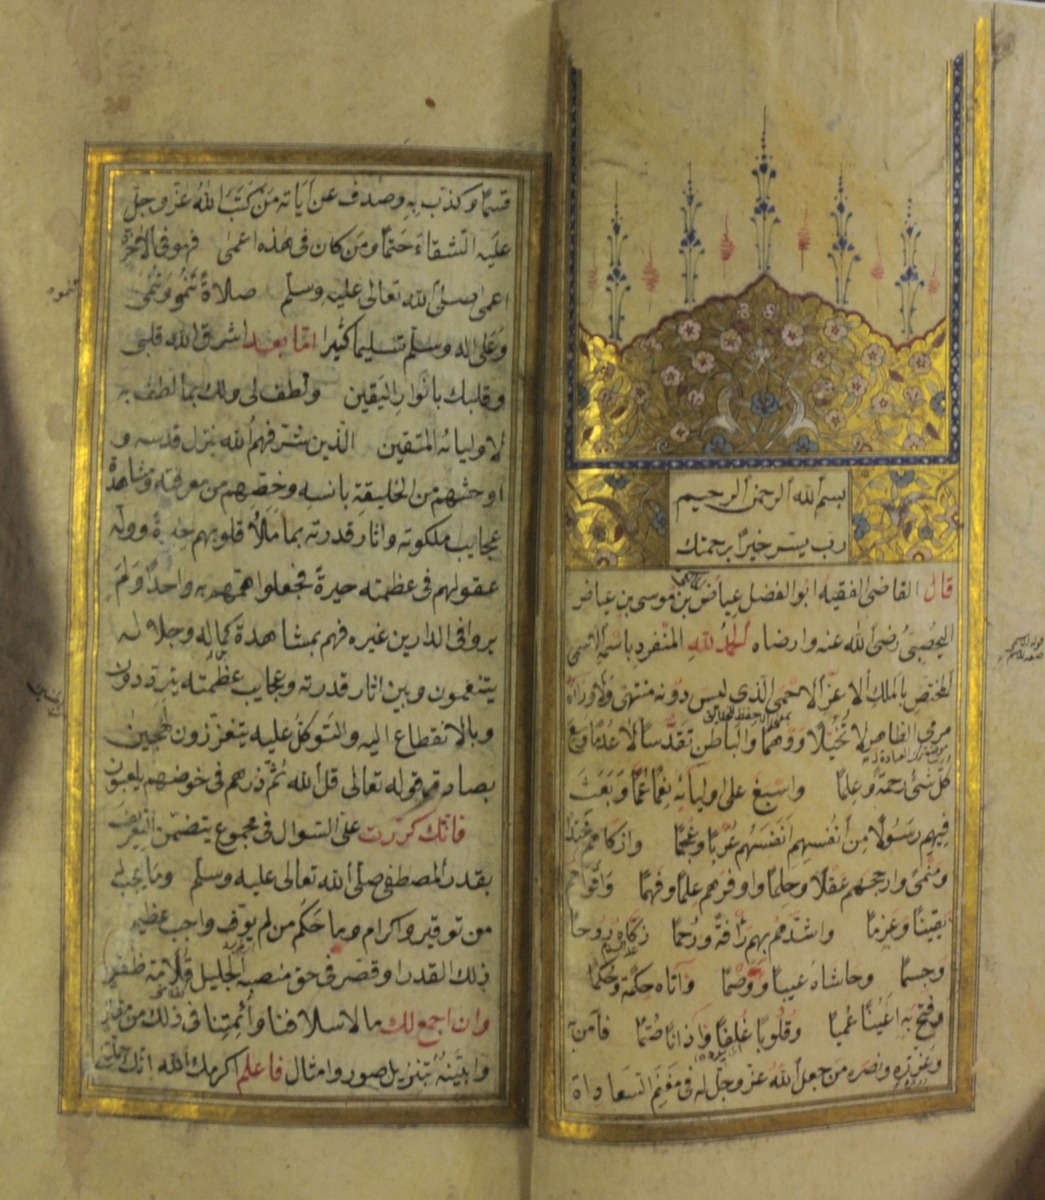 بسم الله الرحمن الرحيم
رب يسر خيرا برحمتك
قال القاضى الفقيه ابو الفضل عياض بن موسى بن عياض
اليحصبى رضى الله عنه وارضاه الحمد لله المنفرد باسمه الاسمى
المختص بالملك الاعز الاحمى الذى ليس دونه منتهى ولا وراءه
مرمى الظاهر لا تخيلا ووهما والباطن تقدسا لا عدما وسع
كل شئ رحمة وعلما واسبغ على اوليائه نعما عما وبعث
فيهم رسولا من أنفسهم أنفسهم عربا وعجما وازكاهم محتدا
ومنمى وارجحهم عقلا وحلما واوفرهم علما وفهما واقواهم
يقينا وعزما واشدهم بهم رأفة ورحما زكاه روحا
وجسما وحاشاه عيبا ووصما وآتاه حكمة وحكما
وفتح به اعينا عميا وقلوبا غلفا واذانا صما فآمن به
وعزره ونصره من جعل الله عز وجل له فى مغنم السعاداة
قسما وكذب به وصدف عن آياته من كتب الله عز وجل
عليه الشقاء حتما ومن كان فى هذه اعمى فهو فى الآخرة
اعمى صلى الله تعالى عليه وسلم صلاة تنمو وتنمى
وعلى اله وسلم تسليما كثيرا اما بعد اشرق الله قلبى
وقلبك بانوار اليقين ولطف لى ولك بما لطف به
لاوليائه المتقين الذين شرفهم الله بنزل قدسه و
اوحشهم من الخليقة بانسه وخصهم من معرفته ومشاهدة
عجايب ملكوته واثار قدرته بما ملأ قلوبهم حبرة ووله
عقولهم فى عظمته حيرة فجعلوا همهم به واحدا ولم
يروا فى الدارين غيره فهم بمشاهدة كماله وجلاله
يتنعمون وبين اثار قدرته وعجايب عظمته يترددون
وبالانقطاع اليه والتوكل عليه يتعززون لهجين
بصادق قوله تعالى قل الله ثم ذرهم فى خوضهم يلعبون
فانك كررت على السوال فى مجموع يتضمن التعريف
بقدر المصطفى صلى الله تعالى عليه وسلم وما يجب له
من توقير واكرام وما حكم من لم يوف واجب عظيم
ذلك القدر او قصر فى حق منصبه الجليل قلامة ظفر
وان اجمع لك ما لاسلافنا وأئمتنا فى ذلك من
وابينه بتنزيل صور وامثال فاعلم اكرمك الله انك